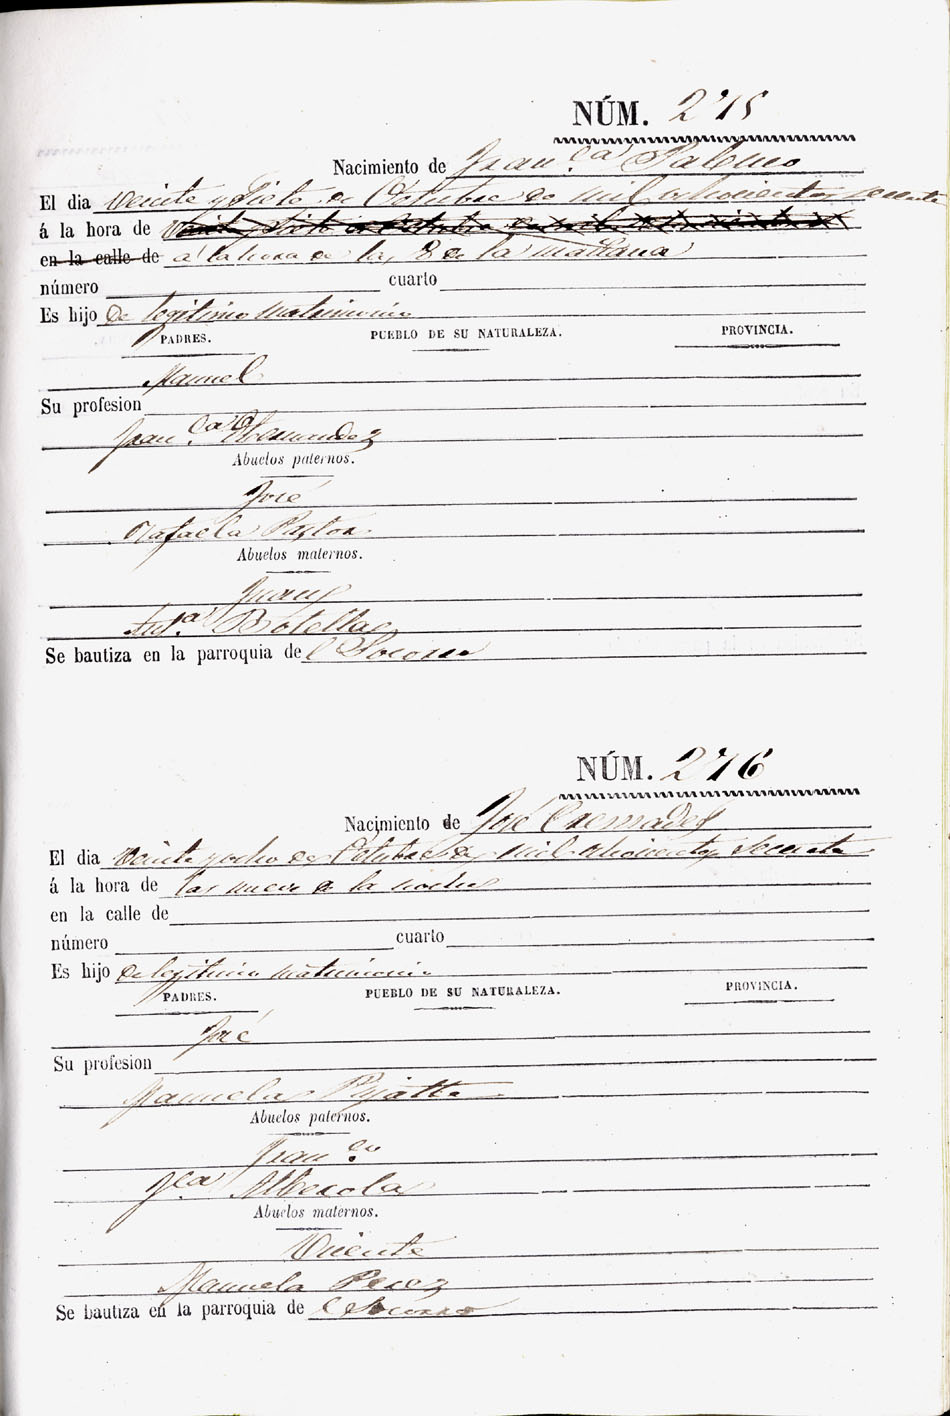 NÚM. 275
Nacimiento de Fran.ca Palomo
El dia veinte y siete de Octubre de mil ochocientos sesenta
á la hora de
en la calle de a la hora de las 8 de la mañana
número cuarto
Es hijo de legitimo matrimonio
PADRES. PUEBLO DE SU NATURALEZA. PROVINCIA.
Manuel
Su profesion
Fran.ca Hernandez
Abuelos paternos.
José
Rafaela Pastor
Abuelos maternos.
Juan
Botella
Se bautiza en la parroquia de l Socorro
NÚM. 276
Nacimiento de José Cremades
El dia veinte y ocho de Octubre de mil ochocientos sesenta
á la hora de las nueve de la noche
en la calle de
número cuarto
Es hijo de legitimo matrimonio
PADRES. PUEBLO DE SU NATURALEZA. PROVINCIA.
José
Su profesion
Manuela
Abuelos paternos.
Fran.co
J.ca Alberola
Abuelos maternos.
Vicente
Manuela Perez
Se bautiza en la parroquia de l Socorro